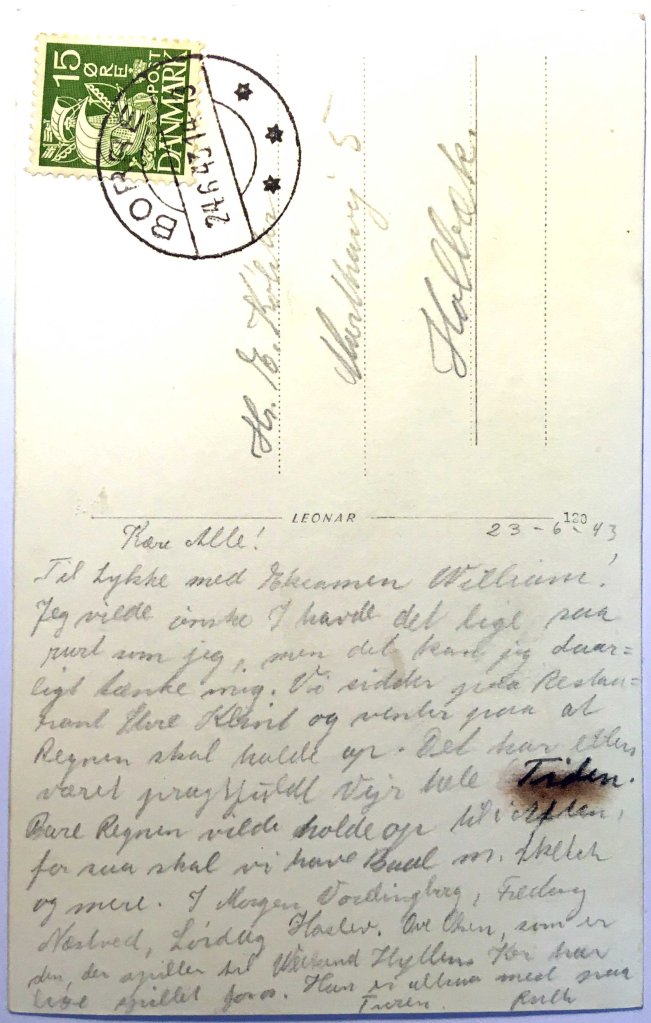 15
ØRE
POST
DANMARK
BORRE
24.6.43 14-15
Hr. E.
5
Holbæk.
LEONAR
120
23-6-43
Kære Alle!
Til Lykke med Eksamen William!
Jeg vilde ønske I havde det lige saa
rart som jeg, men det kan jeg daar=
ligt tænke mig. Vi sidder paa Restau=
rant Store Klint og venter paa at
Regnen skal holde op. Det har ellers
været pragtfuldt Vejr hele Tiden.
Bare Regnen vilde holde op til i Aften,
for saa skal vi have Baal m. sketch
og mere. I Morgen Vordingborg, Fredag
Næstved, Lørdag Haslev. Ove Olsen, som er
den, der spiller til Kor har
lige spillet for os. Han er altsaa med paa
Turen. Ruth